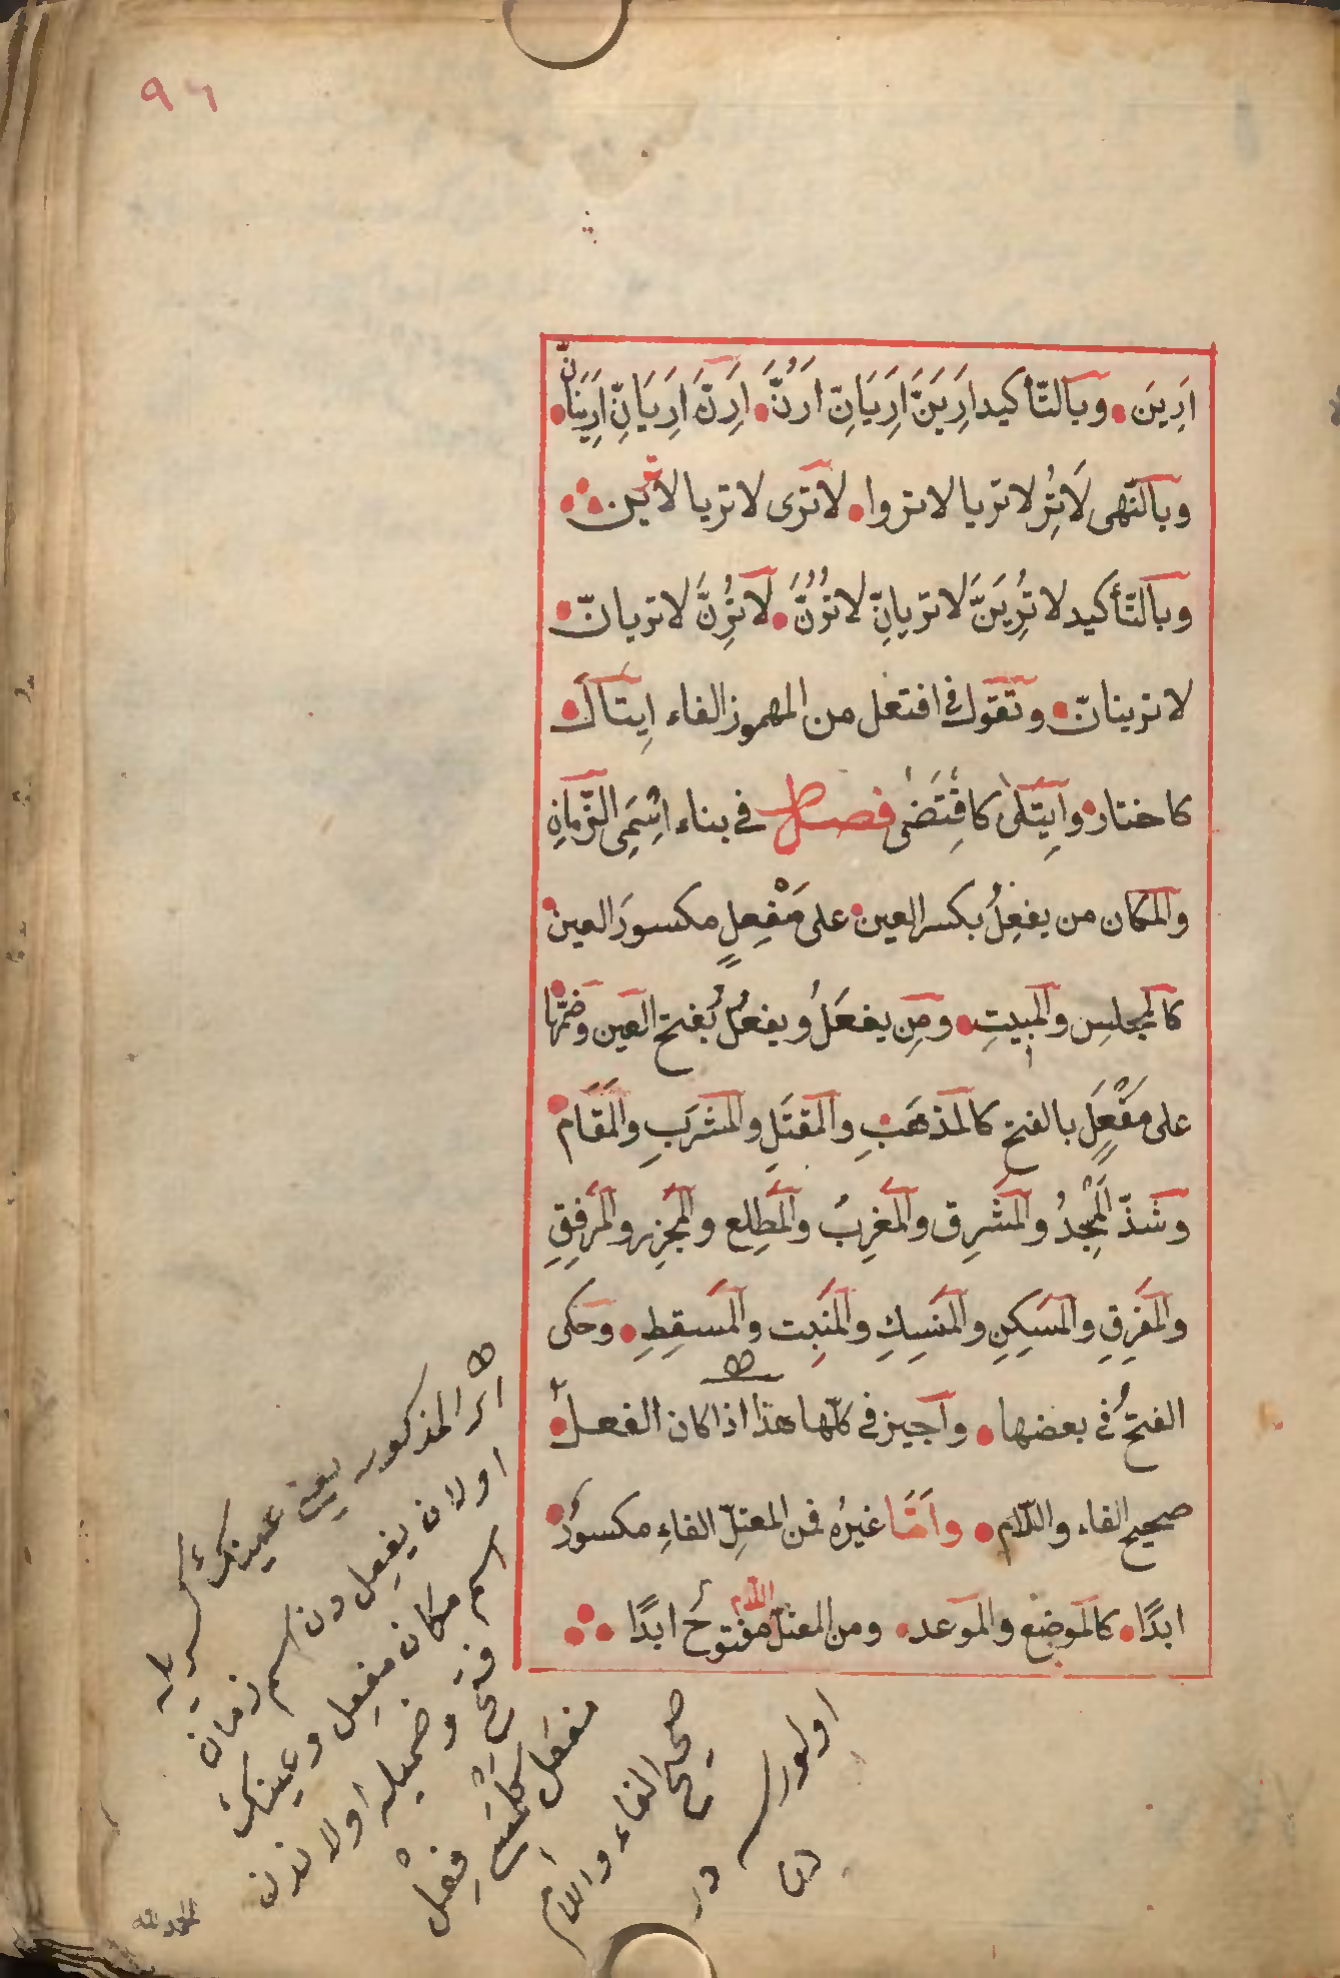 ٩٦
اَرِينَ وبالتّأكيد اَرِيَنَّ اَرِيَانِّ اَرُنَّ اَرِنَّ اَرِيَانِّ اَرِينَانِّ
وبالنّهى لَاتُرِ لا تريا لا تروا لا ترى لا تريا لا ترين
وبالتّأكيد لا تُرِيَنَّ لا تريانِّ لا تُرُنَّ لا تُرِنَّ لا تريانّ
لا ترينانّ وتقول فى افتعل من المهموز الفاء اِيتَاكَ
كاختار وايتَلى كاقتَضٰى فصل فى بناء اسْمَىِ الزّمانِ
والمكان من يفعِلُ بكسر العين على مَفْعِلٍ مكسورَ العين
كالمجلسِ والمبيتِ ومِن يفعَلُ ويفعُلُ بفتح العين وضمّها
على مَفْعَلٍ بالفتح كالمذهَبِ والمقتَلِ والمشرَبِ والمَقَام
وشذّ المسْجِدُ والمشرِق والمغرِبُ والمطلِع والمجزِر والمرفِقِ
والمفرِقِ والمسكِنِ والمنسِكِ والمنبِت والمسقِطِ وحكى
الفتحُ فى بعضها واجيز فى كلّها هذا اذا كان الفعلُ
صحيح الفاء واللّام وامّا غيرُه فمن المعتلّ الفاءِ مكسورٌ
ابدًا كالموضِع والموعد ومن المعتلّ اللّام مفتوحٌ ابدًا
المذكور يعنى عينك كسريله
اولان يفعِل دن اسم زمان
اسم مكان مفعِل وعينك
فتح وضميله اولاندن
مفعَل كلمسى فِعْل
صحيح الفاء واللام
اولورسه در
الحمد لله